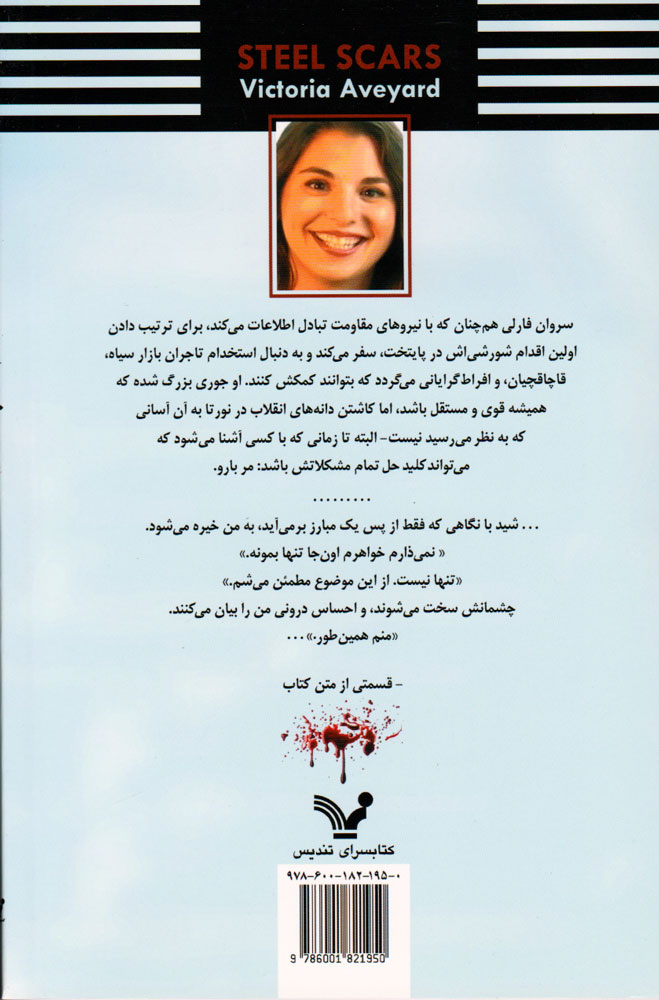 STEEL SCARS
Victoria Aveyard
سروان فارلی هم‌چنان که با نیروهای مقاومت تبادل اطلاعات می‌کند، برای ترتیب دادن
اولین اقدام شورشی‌اش در پایتخت، سفر می‌کند و به دنبال استخدام تاجران بازار سیاه،
قاچاقچیان، و افراط‌گرایانی می‌گردد که بتوانند کمکش کنند. او جوری بزرگ شده که
همیشه قوی و مستقل باشد، اما کاشتن دانه‌های انقلاب در نورتا به آن آسانی
که به نظر می‌رسید نیست- البته تا زمانی که با کسی آشنا می‌شود که
می‌تواند کلید حل تمام مشکلاتش باشد: مر بارو.
.........
... شید با نگاهی که فقط از پس یک مبارز برمی‌آید، به من خیره می‌شود.
« نمی‌ذارم خواهرم اون‌جا تنها بمونه.»
«تنها نیست. از این موضوع مطمئن می‌شم.»
چشمانش سخت می‌شوند، و احساس درونی من را بیان می‌کنند.
«منم همین‌طور.»...
- قسمتی از متن کتاب
کتابسرای تندیس
۹۷۸-۶۰۰-۱۸۲-۱۹۵-۰
9 786001 821950